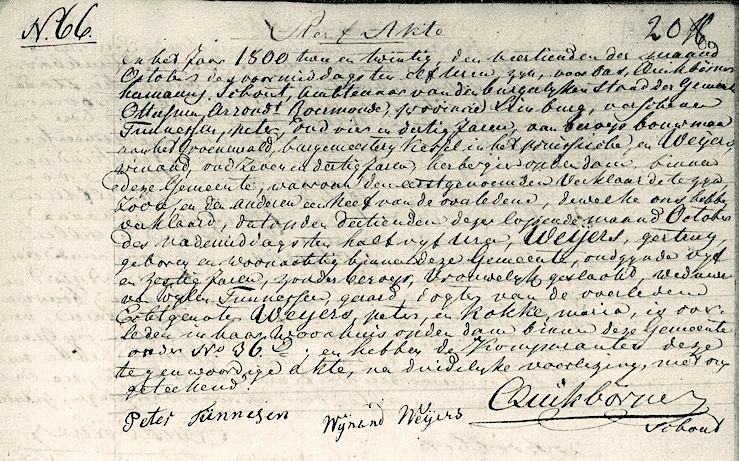 N. 66.
Sterf Akte
20
in het Jaar 1800 twee en twintig, den veertienden der maand
October des voormiddags ten elf uren, zyn, voor ons, Quickborne
Schout, Ambtenaar van den burgerlyken Stand der Gemeente
Ottersum, Arrondt Roermonde, provincie Limburg, verschenen
Tunnessen, peter, oud vier en dertig Jaren, van beroep bouwman
aan het Groenwald, burgemeestery Kessel in het pruissische en Weijers
winand, oud Zeven en dertig Jaren, herbergier op den dam, binnen
deze Gemeente, waarvan den eerstgenoemden Verklaarde te zyn
Zoon en den anderen een Neef van de overledene, dewelke ons hebben
verklaard, dat op den dertienden dezer loopende maand October
des nademiddags ten half vyf uren, Weijers, gertrug,
geboren en woonachtig binnen deze Gemeente, oud zynde vyf
en Zestig Jaren, zonder beroep, Vrouwelyk geslacht, weduwe
van wylen Tunnessen, gerard, dogter van de overleden
Echtgenoten Weyers, peter, en Kokke, maria, is over-
leden in haar woonhuis op den dam binnen deze Gemeente
onder No 36; en hebben de Komparanten deze
tegenwoordige akte, na duidelyke voorlezing, met ons
geteekend.
Peter Tunnesen
Wynand Weijers
Quickborne
Schout